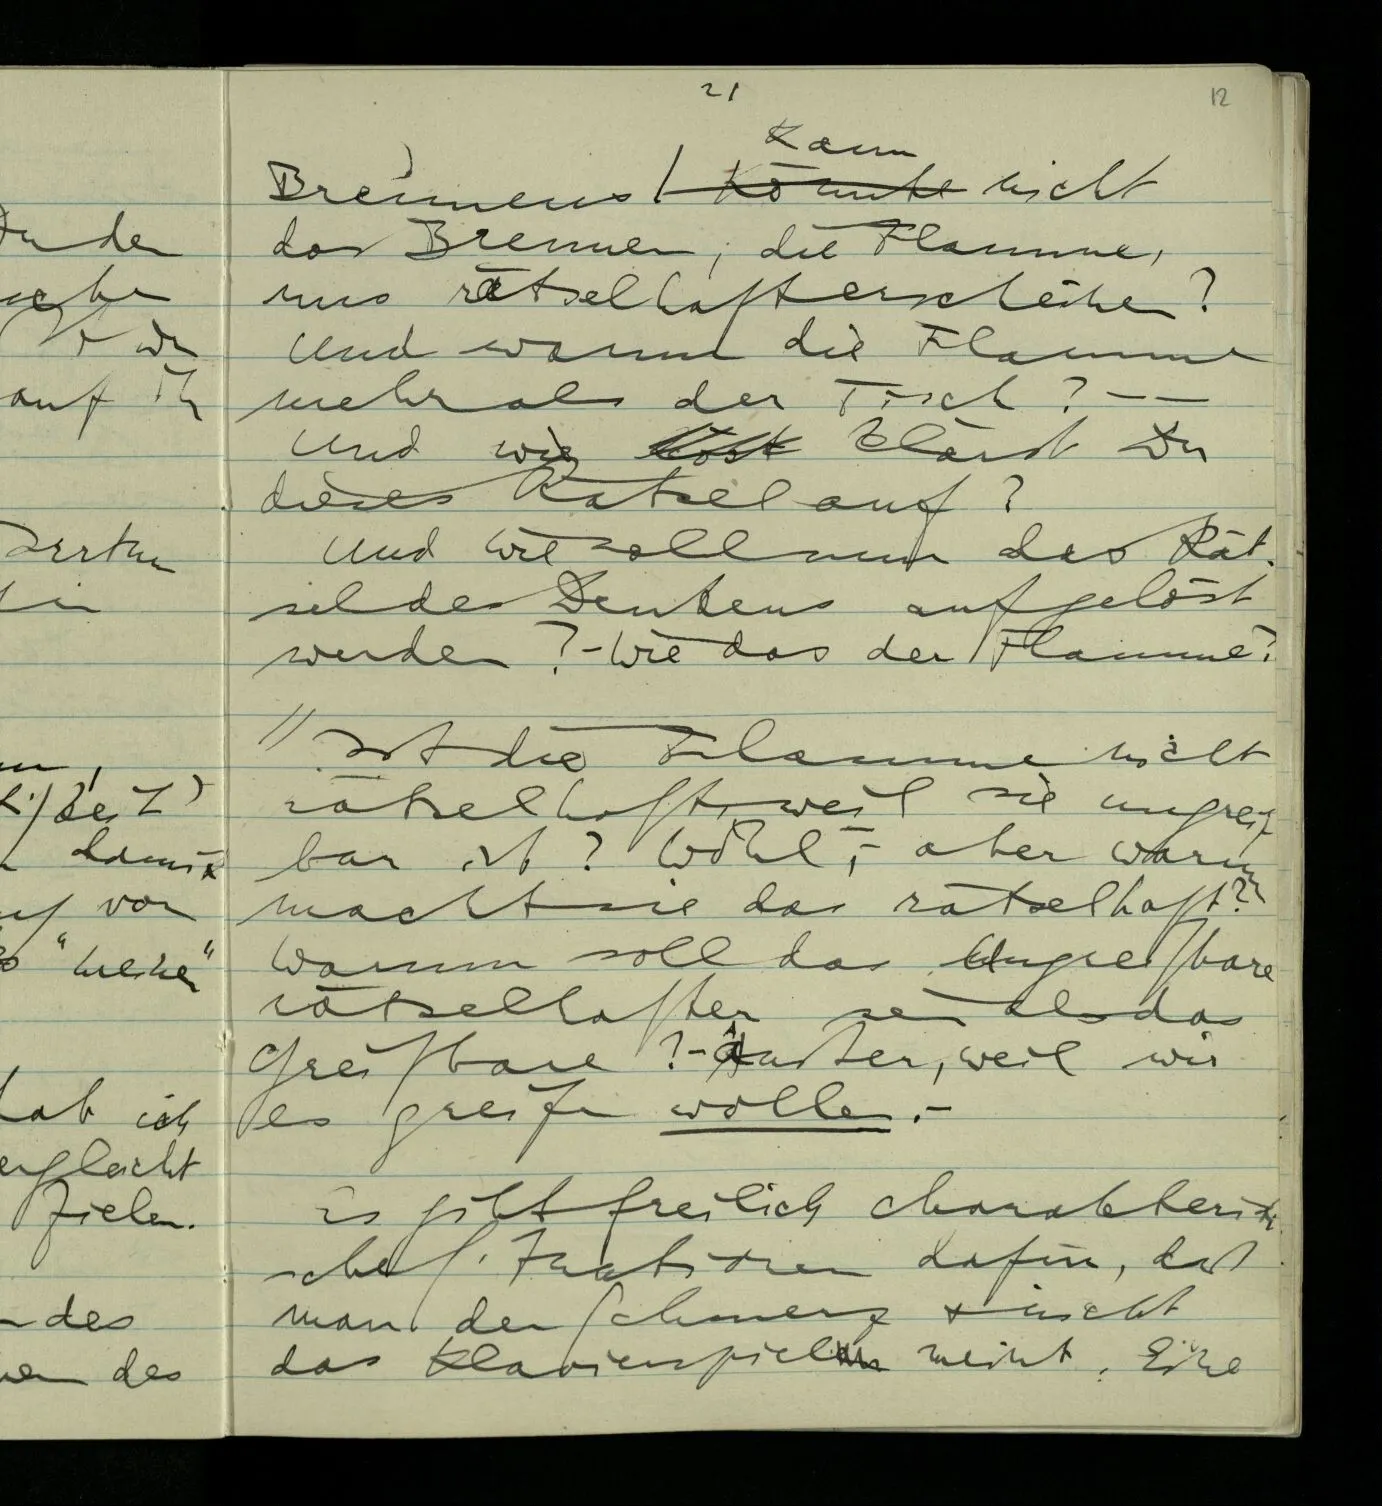 21
12
Kann
Brennens / könnte nicht
das Brennen, die Flamme,
uns rätselhaft erscheinen?
Und warum die Flamme
mehr als der Tisch? – –
Und wie löst klärst Du
dieses Rätsel auf?
Und wie soll nun das Rät-
sel des Denkens aufgelöst
werden? – Wie das der Flamme?
// Ist die Flamme nicht
rätselhaft, weil sie ungreif
bar ist? Wohl, – aber warum
macht sie das rätselhaft?
Warum soll das Ungreifbare
rätselhafter sein als das
Greifbare? – Außer, weil wir
es greifen wollen. –
Es gibt freilich charakteristi
sche Reaktionen dafür, daß
man den Schmerz & nicht
das Klavierspielen meint. Eine
auf
"meine"
auf von
hab ich
Zielen.
des
des